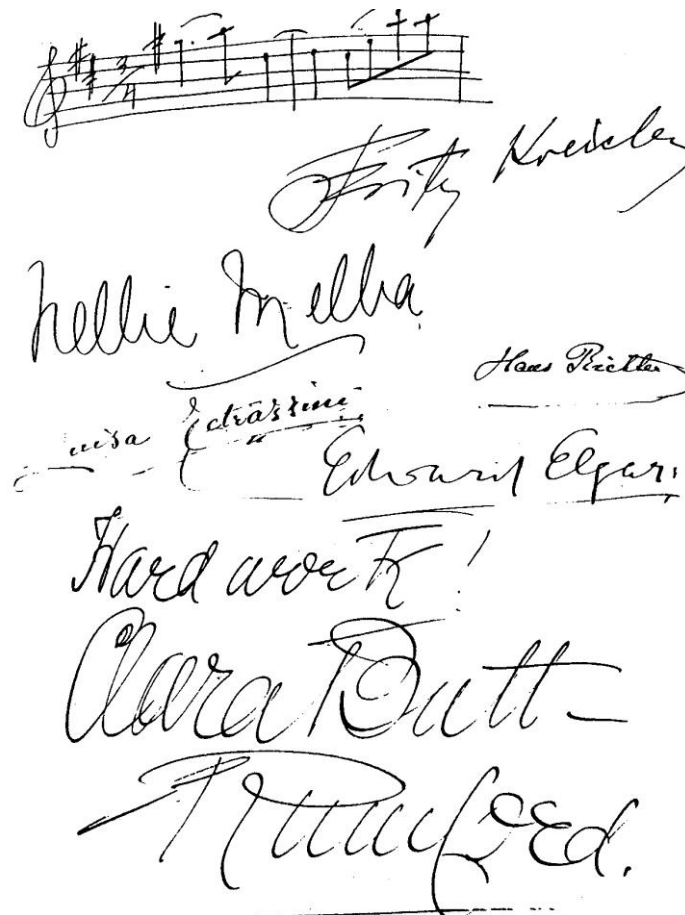 3/4
Fritz Kreisler
Nellie Melba.
Hans Richter
Luisa Tetrazzini
Edward Elgar.
Hard work!
Clara Butt-
Rumford.